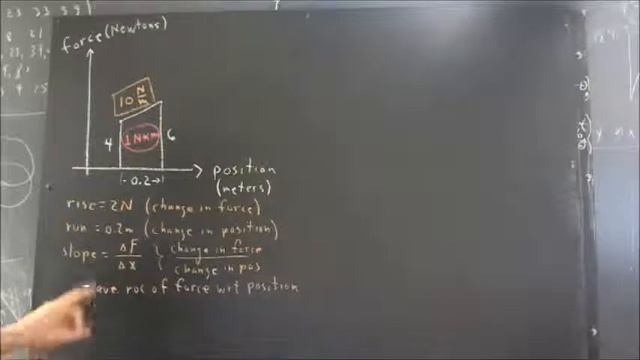 force (Newtons)
10 N/m
4
1 Nxm
6
0.2
position
(meters)
rise = 2N (change in force)
run = 0.2m (change in position)
slope = ΔF/Δx } change in force / change in pos
ave roc of force wrt position